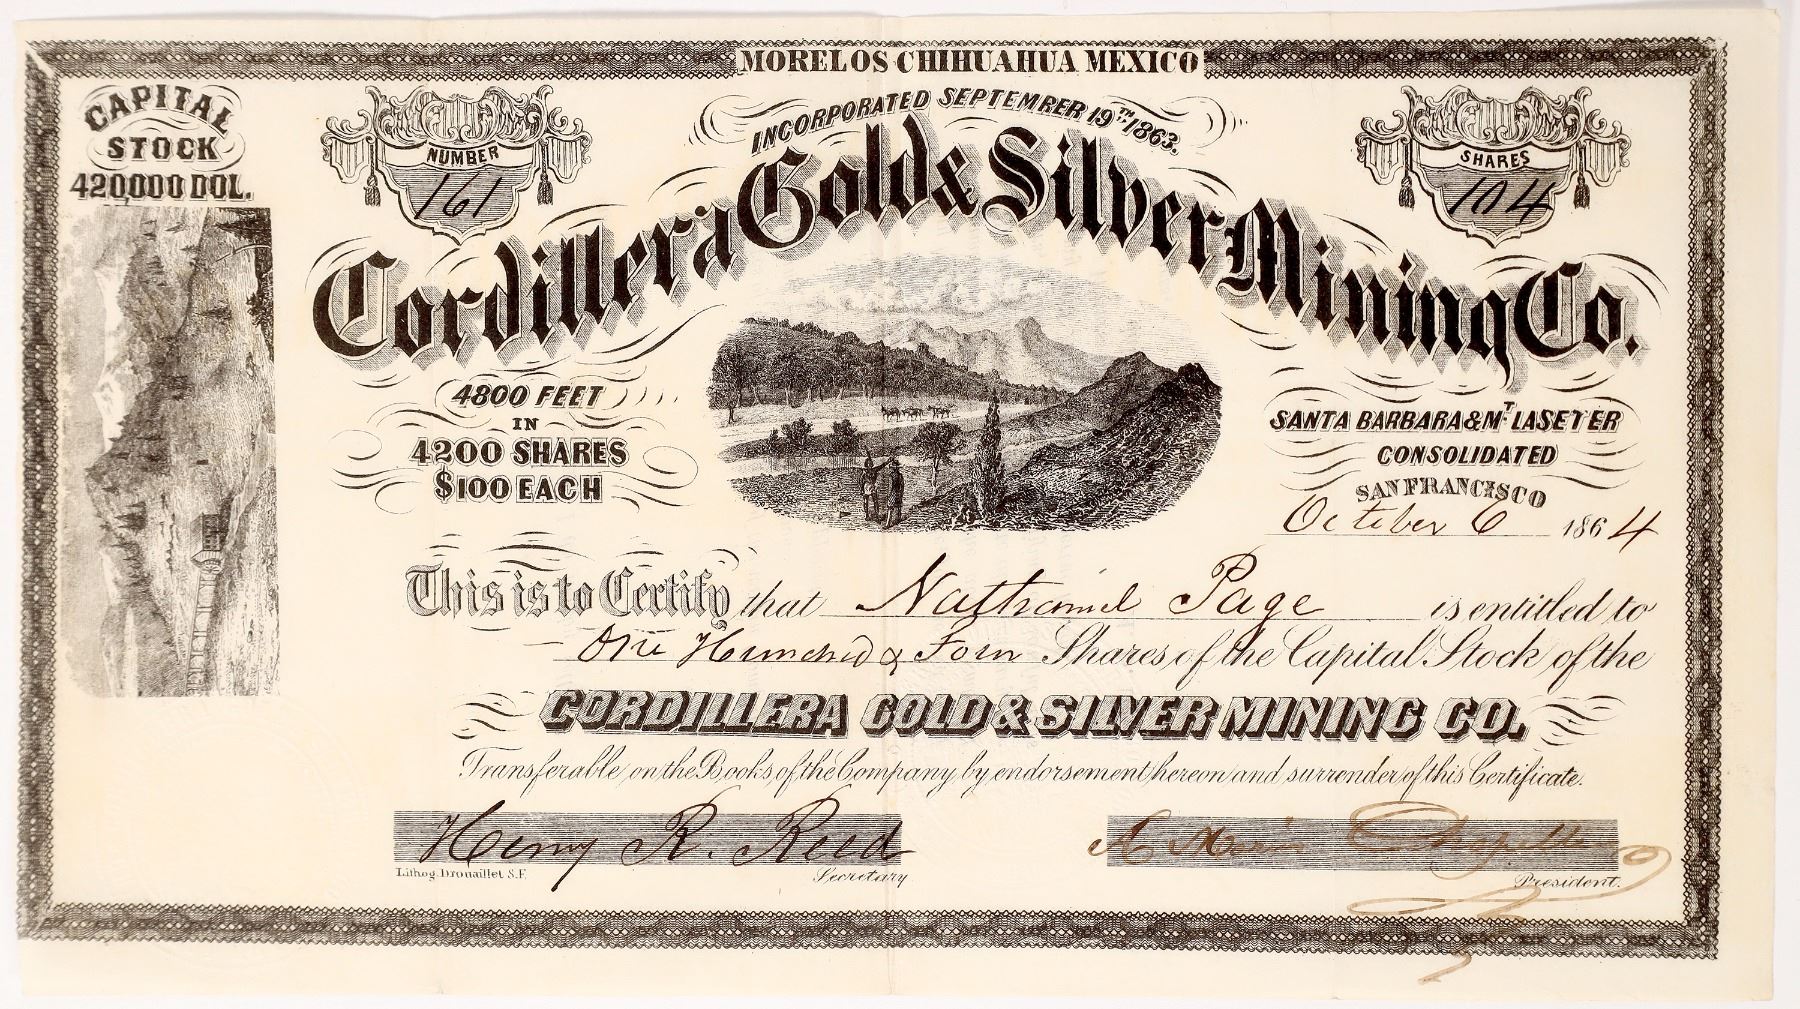 MORELOS CHIHUAHUA MEXICO
INCORPORATED SEPTEMBER 19TH 1863.
CAPITAL
STOCK
420000 DOL.
NUMBER
161
SHARES
104
Cordillera Gold & Silver Mining Co.
4800 FEET
IN
4200 SHARES
$100 EACH
SANTA BARBARA & MT LASETER
CONSOLIDATED
SAN FRANCISCO
October 6 1864
This is to Certify that Nathaniel Page is entitled to
One Hundred & Four Shares of the Capital Stock of the
CORDILLERA GOLD & SILVER MINING CO.
Transferable on the Books of the Company by endorsement hereon and surrender of this Certificate.
Henry R. Reed
Lithog. Drouaillet S.F.
Secretary
President.